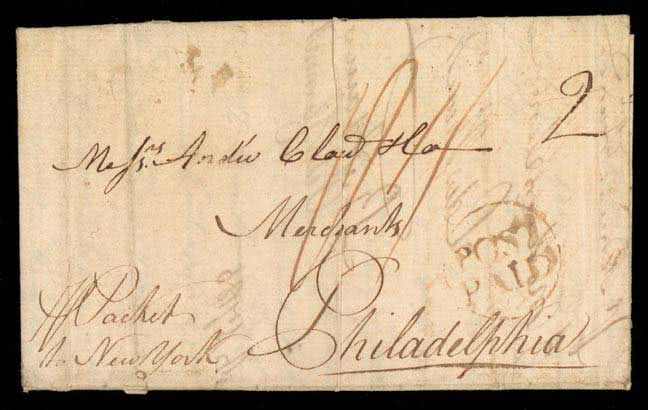 2
Messrs. Andw Clow & Co
Merchants
POST
PAID
Philadelphia
P Packet
to New York